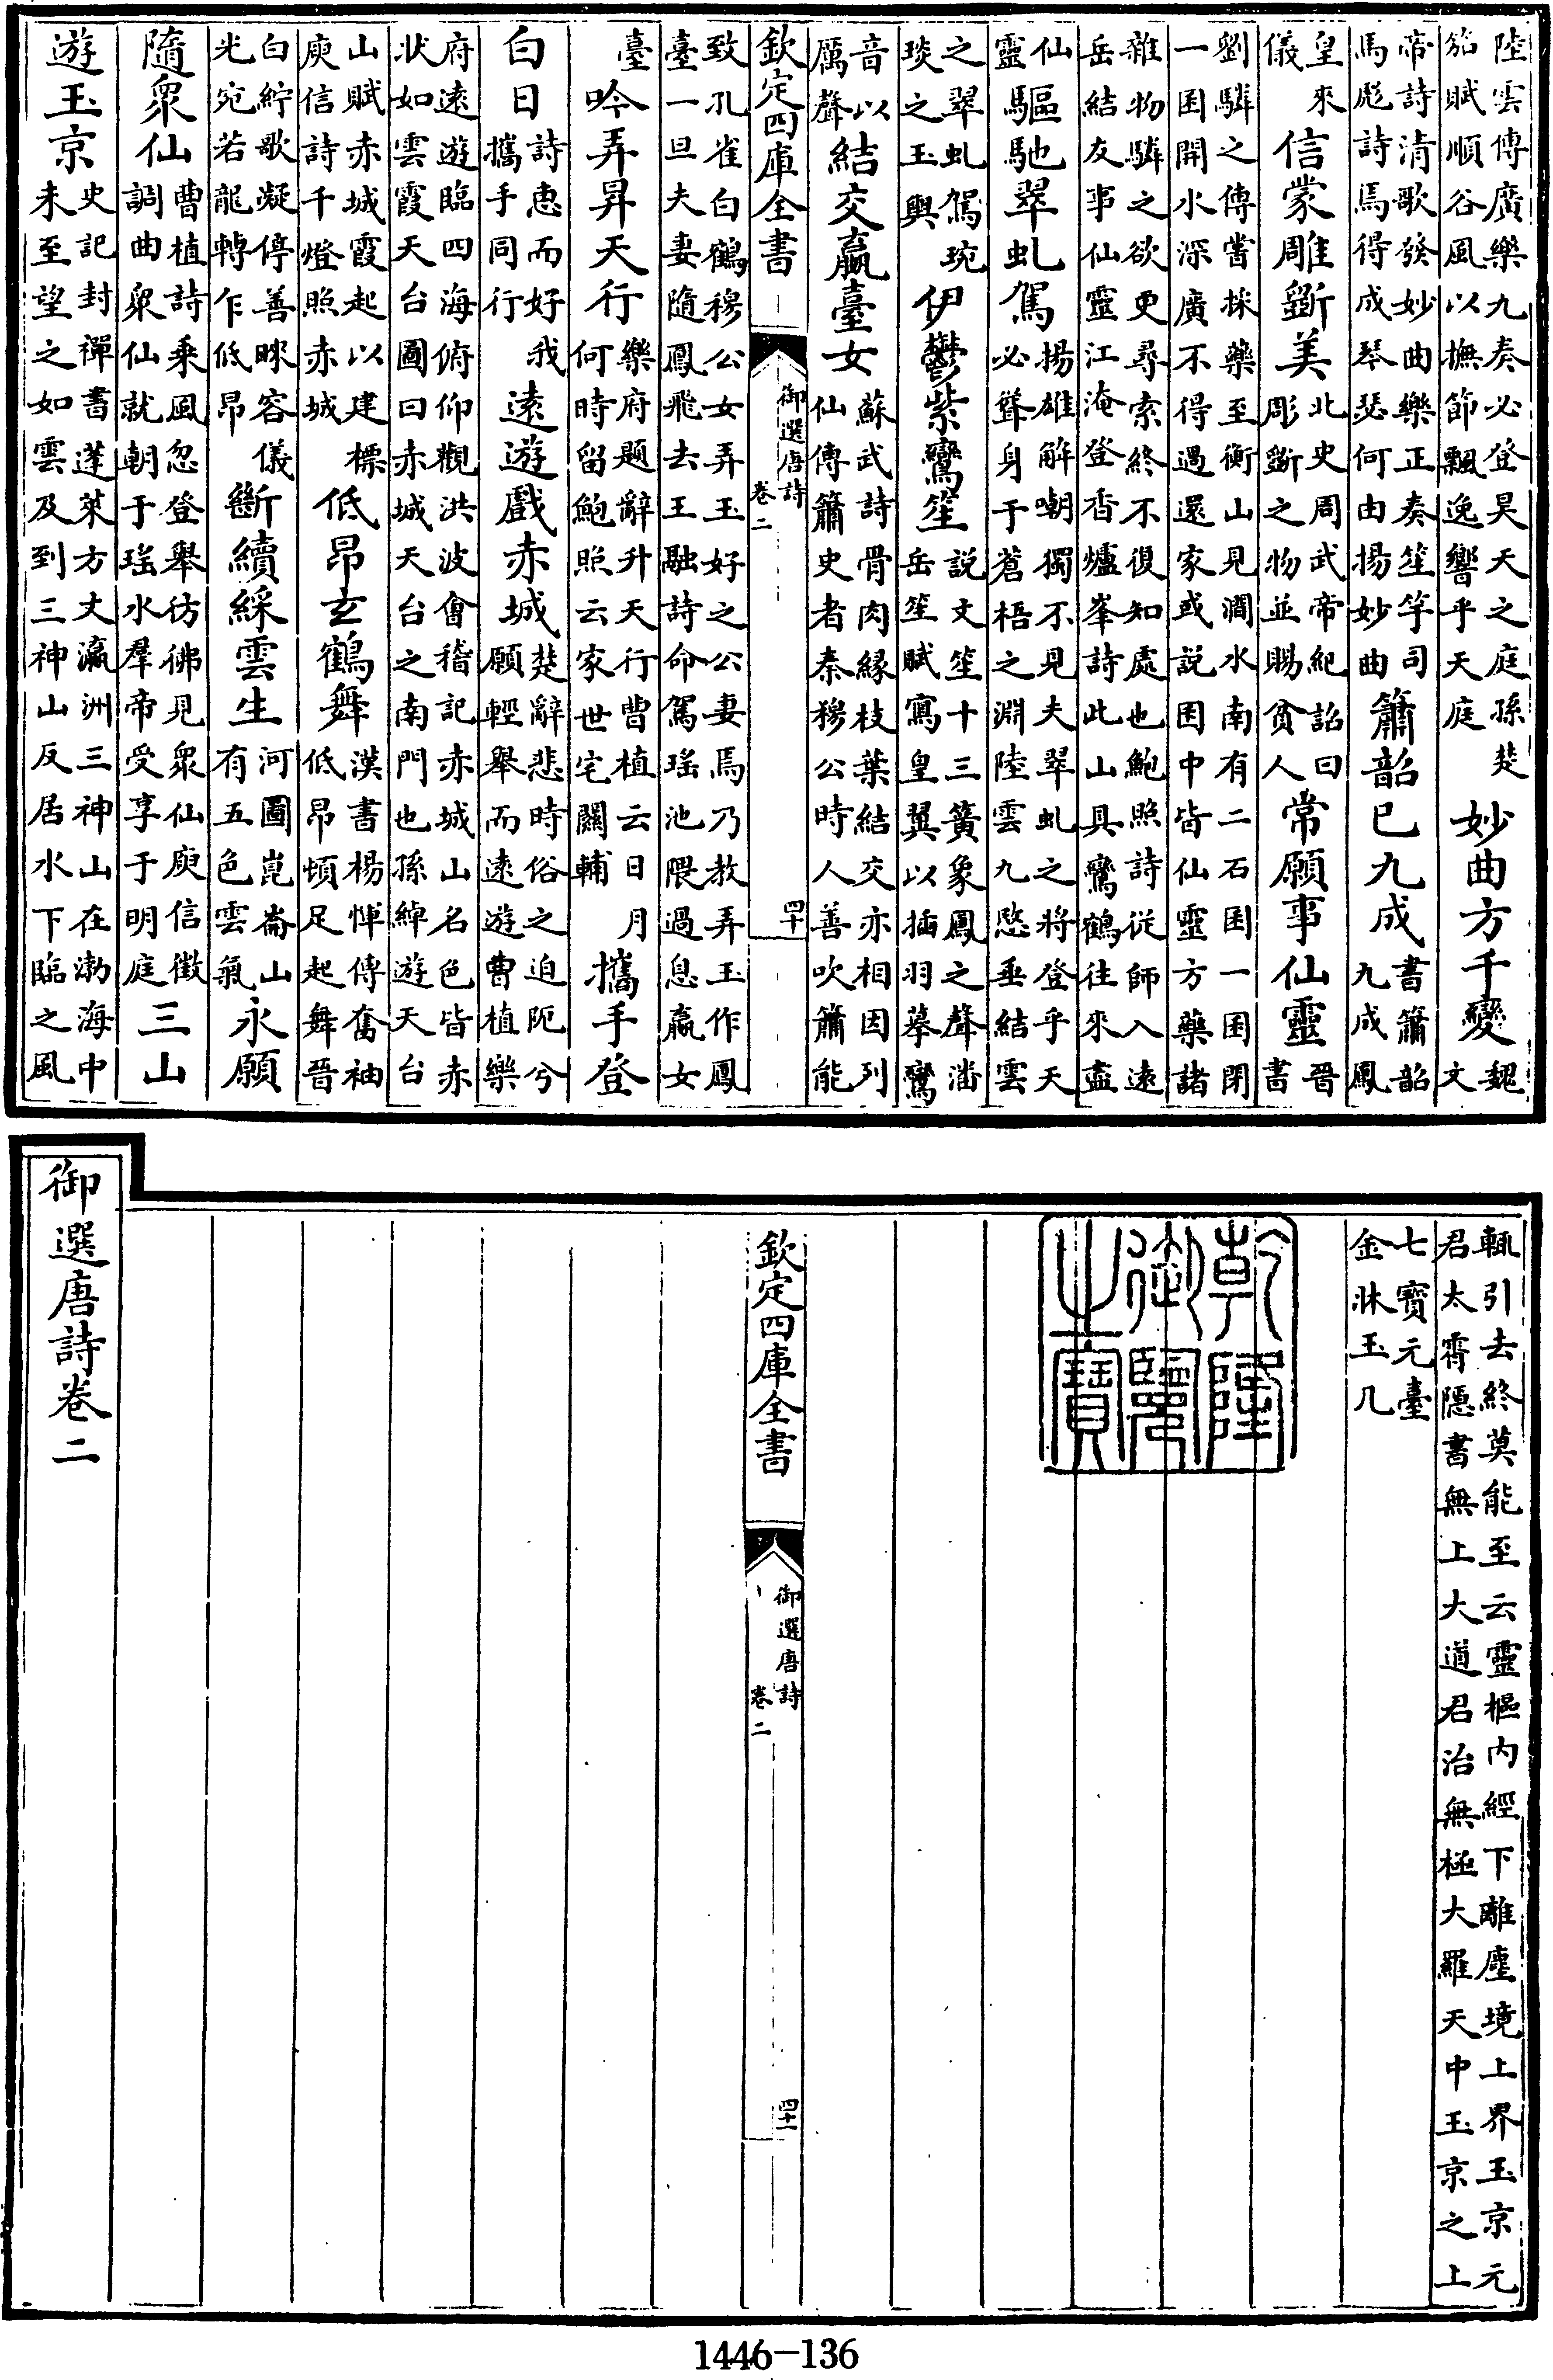 陸雲傳廣樂九奏必登昊天之庭孫楚
笳賦順谷風以撫節飄逸響乎天庭
妙曲方千變
魏
文
帝詩清歌發妙曲樂正奏笙竽司
馬彪詩焉得成琴瑟何由揚妙曲
簫韶已九成
書簫韶
九成鳳
皇來
儀
信蒙雕斵美
北史周武帝紀詔曰
彫斵之物並賜貧人
常願事仙靈
晉
書
劉驎之傳嘗採藥至衡山見澗水南有二石囷一囷閉
一囷開水深廣不得過還家或說囷中皆仙靈方藥諸
雜物驎之欲更尋索終不復知處也鮑照詩從師入遠
岳結友事仙靈江淹登香爐峯詩此山具鸞鶴往來盡
仙
靈
驅馳翠虬駕
揚雄解嘲獨不見夫翠虬之將登乎天
必聳身于蒼梧之淵陸雲九愍垂結雲
之翠虬駕琬
琰之玉輿
伊鬱紫鸞笙
說文笙十三簧象鳳之聲潘
岳笙賦寫皇翼以插羽摹鸞
音以
厲聲
結交嬴臺女
蘇武詩骨肉緣枝葉結交亦相因列
仙傳簫史者秦穆公時人善吹簫能
欽定四庫全書
御選唐詩
卷二
四十
致孔雀白鶴穆公女弄玉好之公妻焉乃教弄玉作鳳
臺一旦夫妻隨鳳飛去王融詩命駕瑤池隈過息嬴女
臺
吟弄昇天行
樂府題辭升天行曹植云日月
何時留鮑照云家世宅關輔
攜手登
白日
詩惠而好我
攜手同行
遠遊戲赤城
楚辭悲時俗之迫阨兮
願輕舉而遠遊曹植樂
府遠遊臨四海俯仰觀洪波會稽記赤城山名色皆赤
狀如雲霞天台圖曰赤城天台之南門也孫綽遊天台
山賦赤城霞起以建標
庾信詩千燈照赤城
低昂玄鶴舞
漢書楊惲傳奮袖
低昂頓足起舞晉
白紵歌凝停善睞容儀
光宛若龍轉乍低昂
斷續綵雲生
河圖崑崙山
有五色雲氣
永願
隨衆仙
曹植詩乘風忽登舉彷彿見衆仙庾信徵
調曲衆仙就朝于瑤水羣帝受享于明庭
三山
遊玉京
史記封禪書蓬萊方丈瀛洲三神山在渤海中
未至望之如雲及到三神山反居水下臨之風
輒引去終莫能至云靈樞內經下離塵境上界玉京元
君太霄隱書無上大道君治無極大羅天中玉京之上
七寶元臺
金牀玉几
乾隆
御覽
之寶
欽定四庫全書
御選唐詩
卷二
四十一
御選唐詩卷二
1446-136